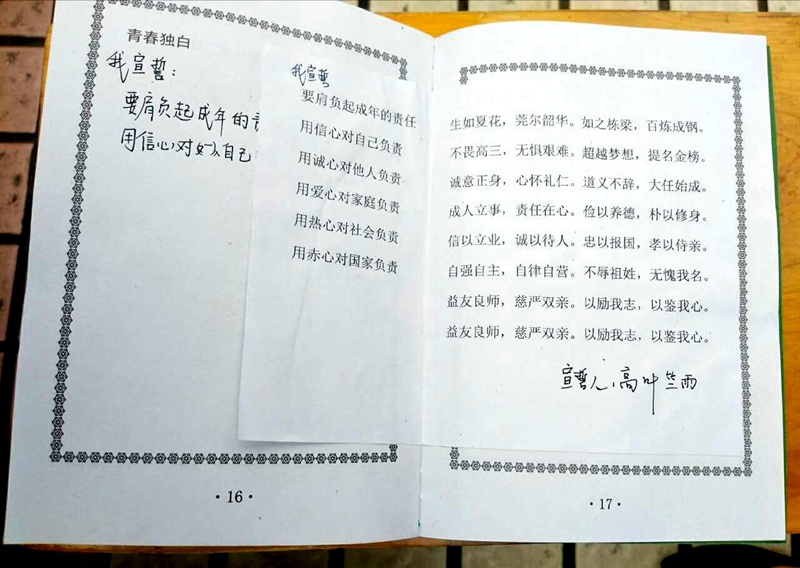 青春独白
我宣誓：
要肩负起成年的责
用信心对自己
我宣誓
要肩负起成年的责任
用信心对自己负责
用诚心对他人负责
用爱心对家庭负责
用热心对社会负责
用赤心对国家负责
·16·
生如夏花，莞尔韶华。如之栋梁，百炼成钢。
不畏高三，无惧艰难。超越梦想，提名金榜。
诚意正身，心怀礼仁。道义不辞，大任始成。
成人立事，责任在心。俭以养德，朴以修身。
信以立业，诚以待人。忠以报国，孝以侍亲。
自强自主，自律自营。不辱祖姓，无愧我名。
益友良师，慈严双亲。以励我志，以鉴我心。
益友良师，慈严双亲。以励我志，以鉴我心。
宣誓人：高叶竺雨
·17·